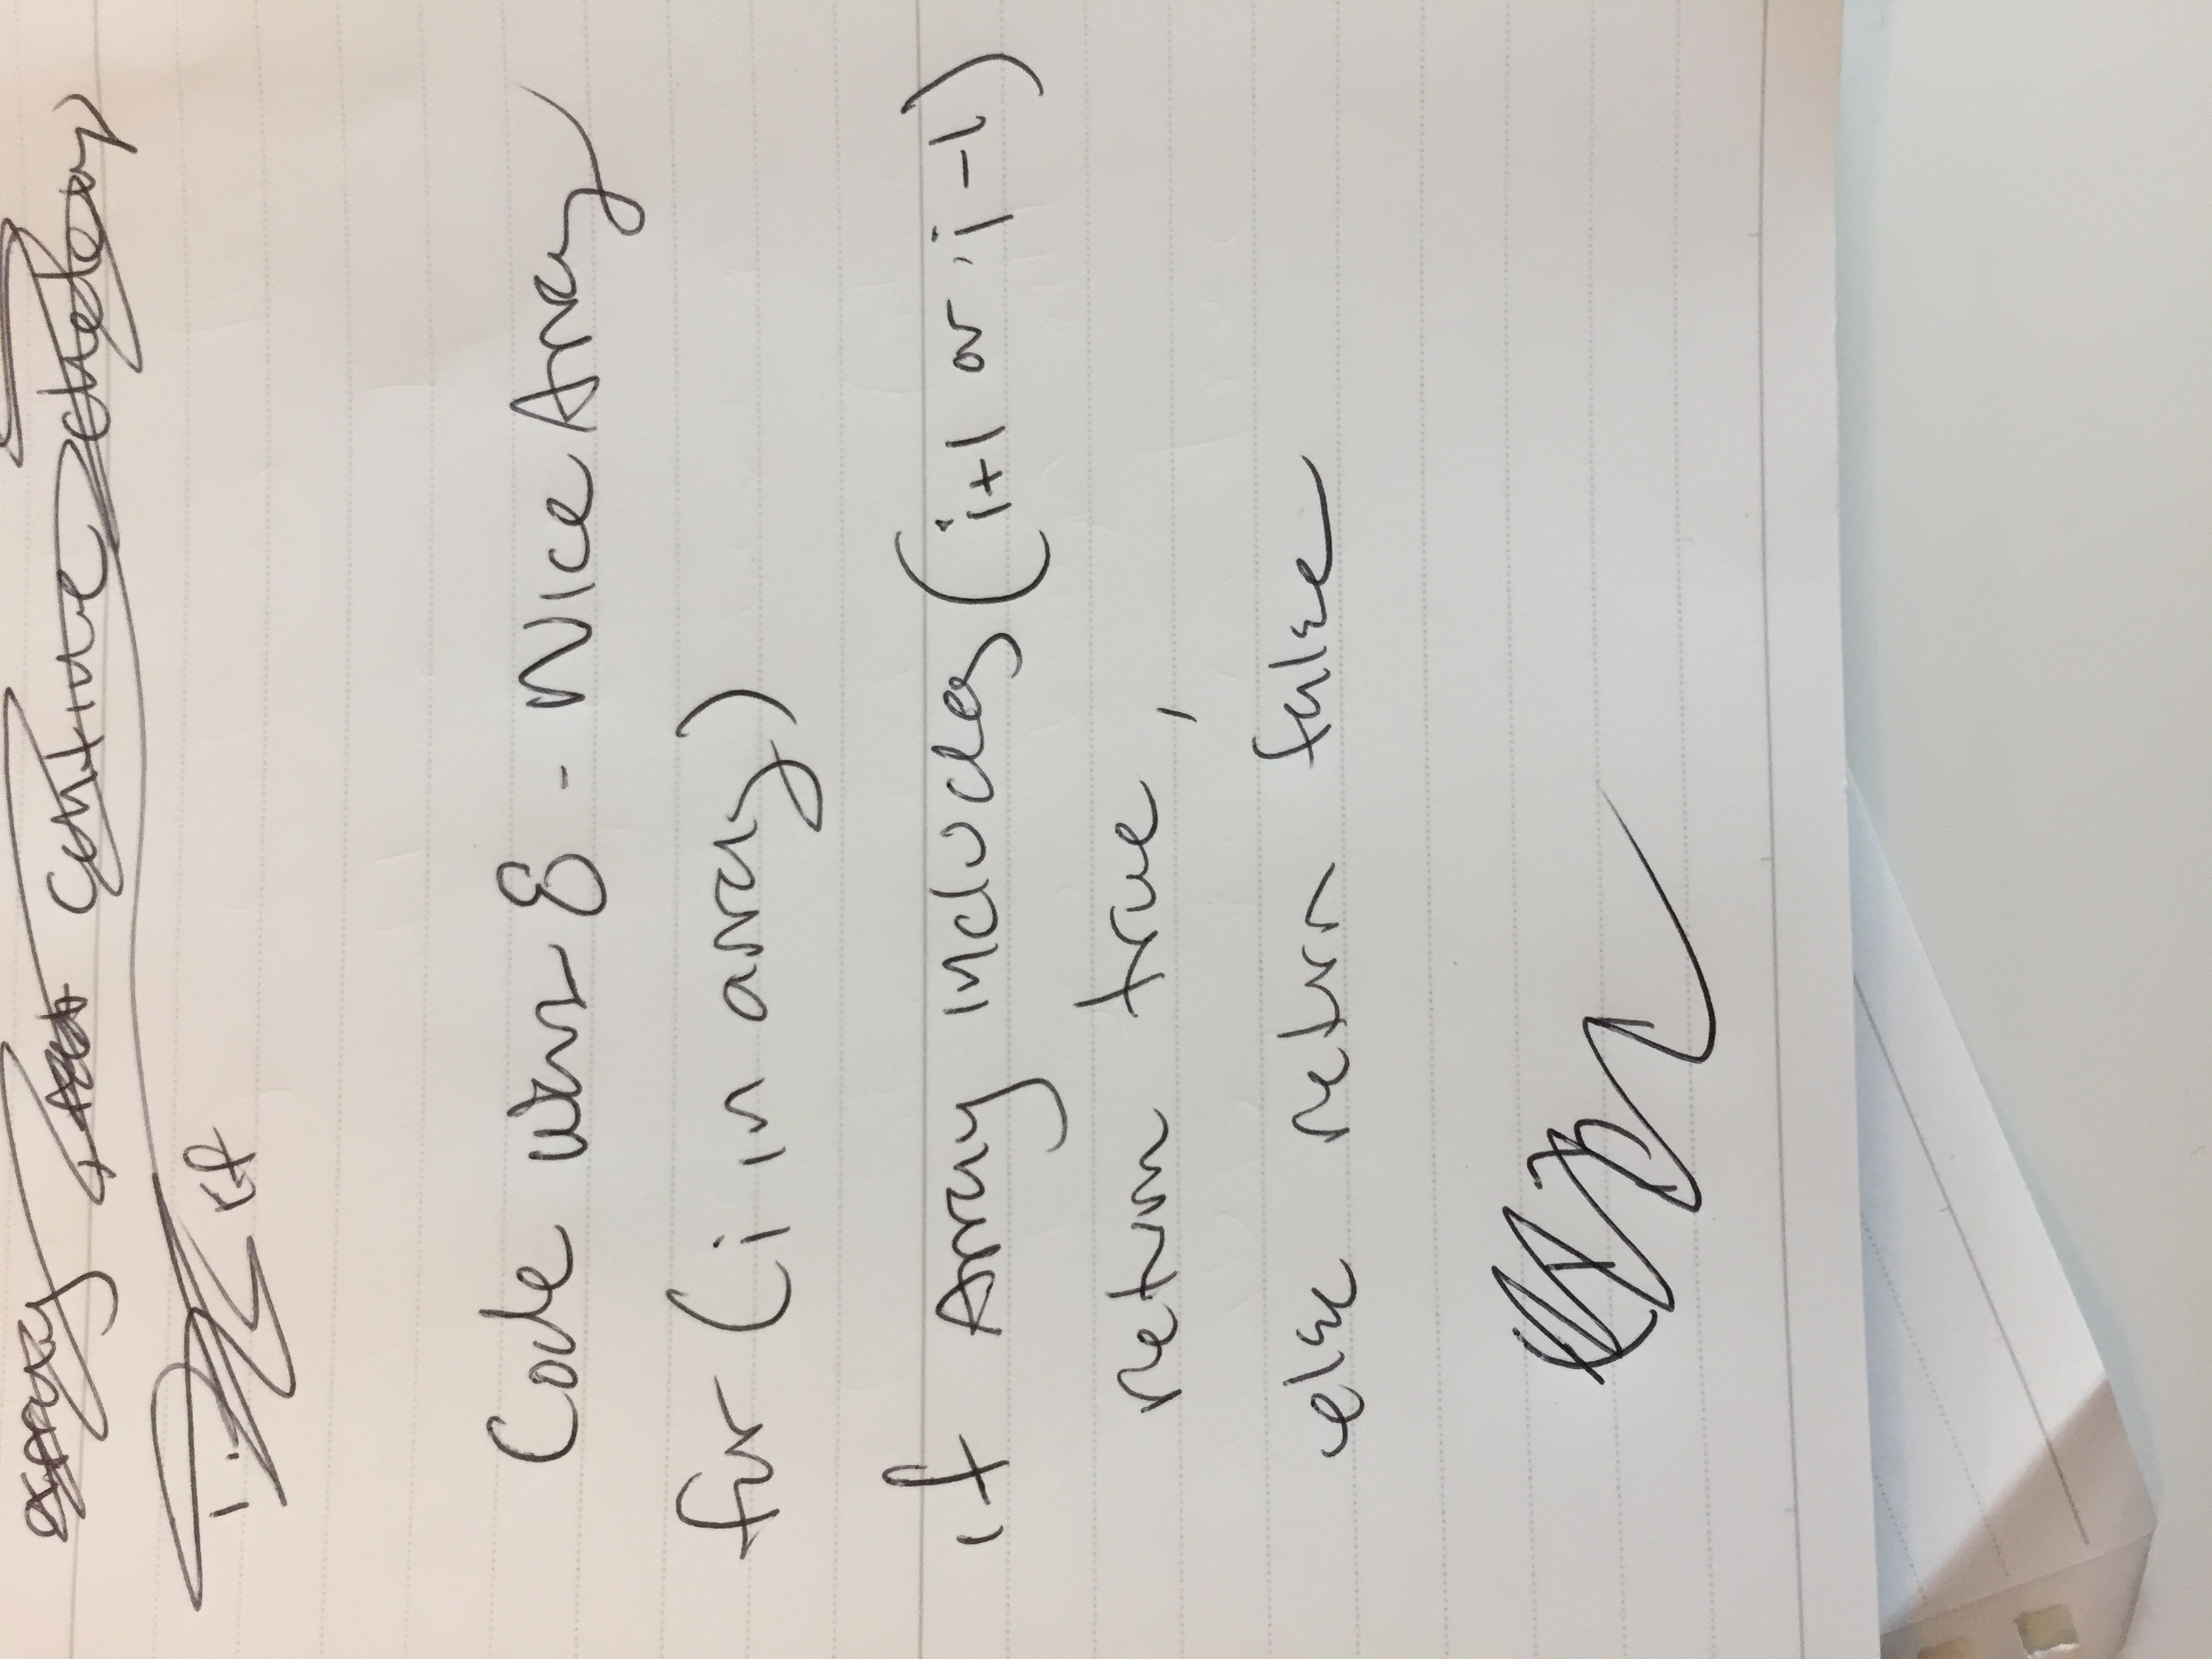 array continue
If
Code Wars 8 - Nice Array
for (i in array)
if Array includes (i+1 or i-1)
return true,
else return false